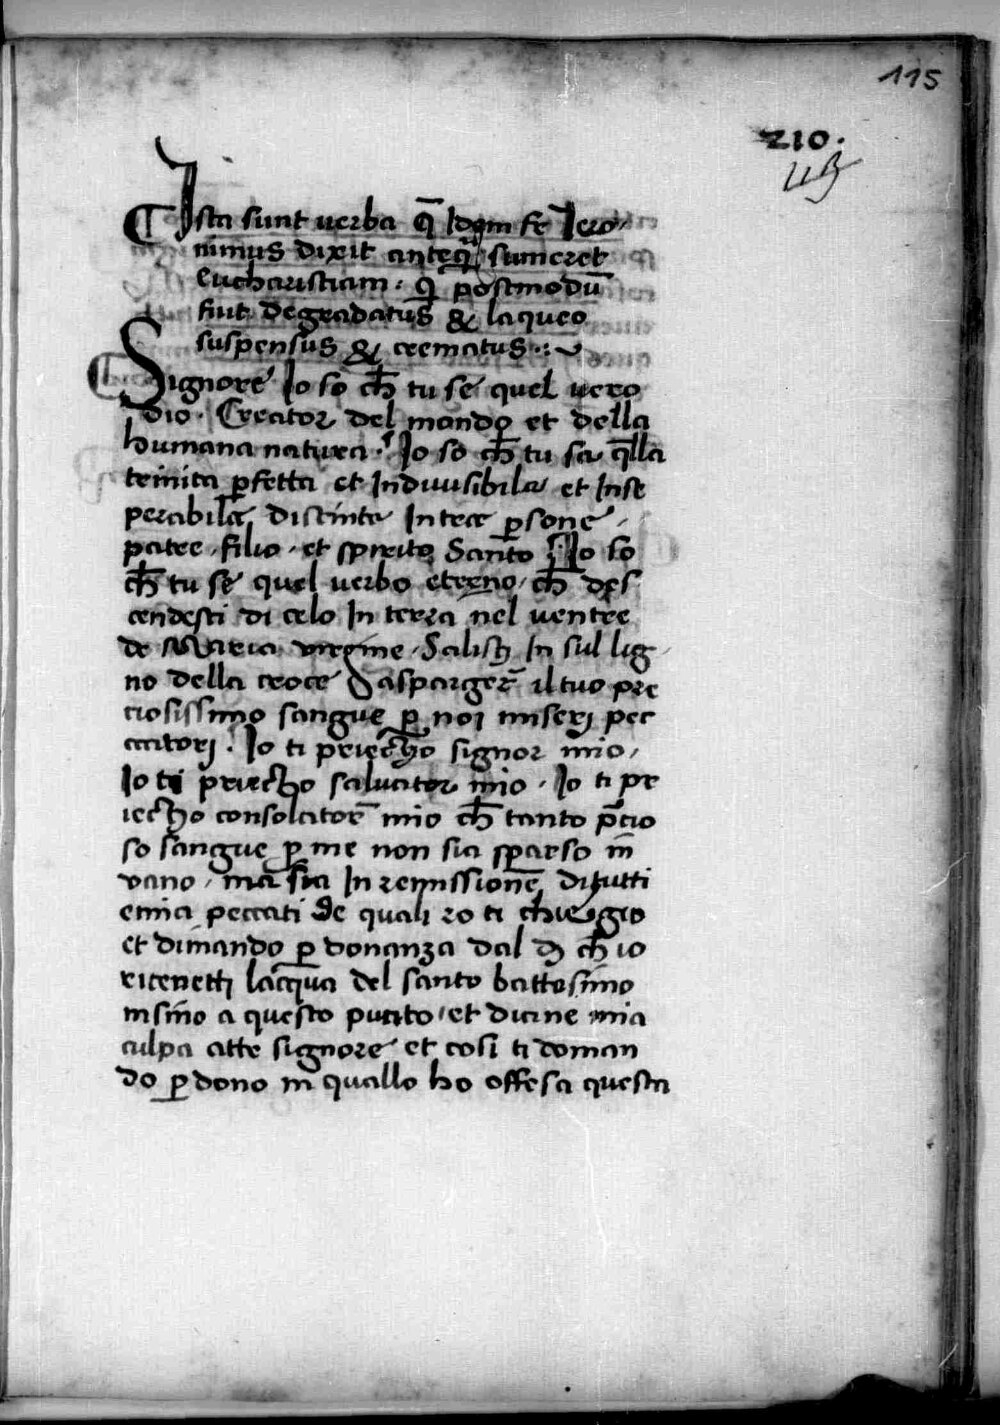 115
210.
115
Ista sunt verba q̄ Idem fr̄ Jero/
nimus dixit anteq̄ȝ sumeret
Eucharistiam. q̄ postmodū
fuit degradatus & laqueo
suspensus & crematus
Signore Io so ch̄ tu se quel vero
dio. Creator del mondo et della
humana natura. Io so ch̄ tu sa q̄lla
trinita ꝑfetta et Induusibila et Inse
perabile distinta In tree ꝑsone.
patre. filio. et spirito Santo Io so
ch̄ tu se quel verbo eterno. ch̄ des
cendesti di celo In terra nel ventre
de Maria virgine. Salisti In sul lig
no della croce A spargerē il tuo pre
ciosissimo sangue ꝑ noi miserj pec
catorj. Io ti priecho signor mio,
Io ti priecho salvator mio. Io ti pr
iecho consolatorē mio ch̄ tanto p̄cio
so sangue ꝑ me non sia sparso in
vano. ma sia In remissionē di tutti
e mia peccati de quali io ti chiegio
et dimando ꝑdonanza dal dì ch̄ io
ricevetti lacqua del santo battesimo
insino a questo punto et dicine mia
culpa atte signore et cosi ti doman
do ꝑdono in quallo ho offesa questa